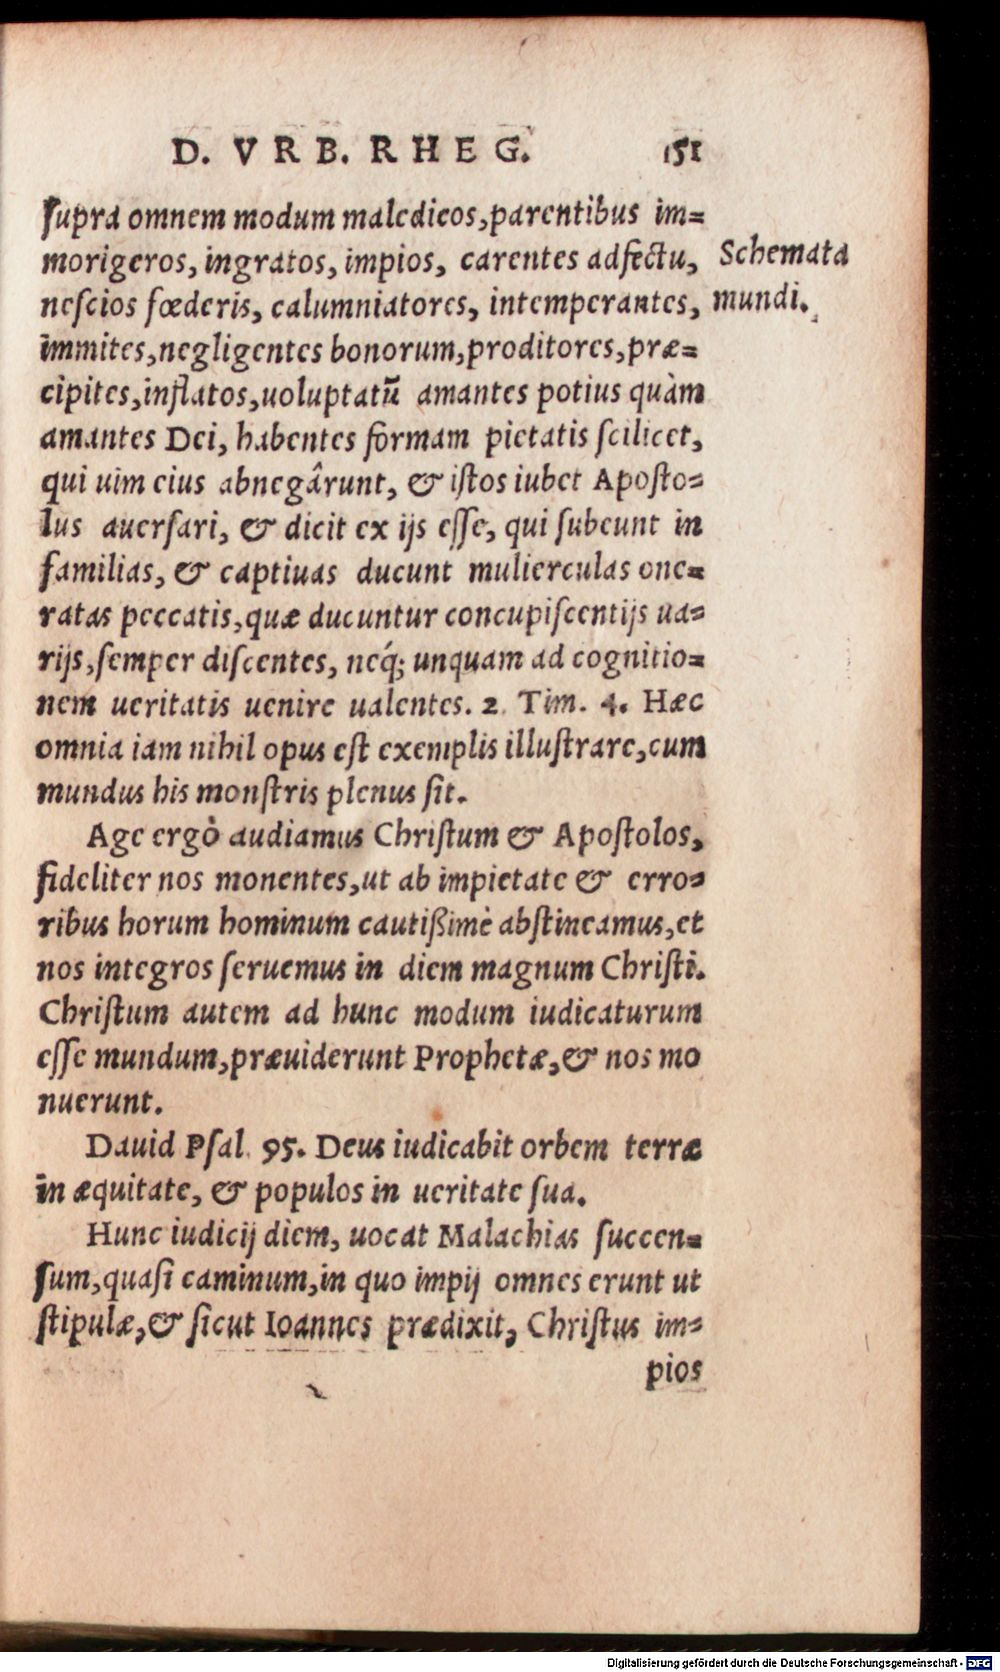 D. VRB. RHEG. 151
supra omnem modum maledicos, parentibus im=
morigeros, ingratos, impios, carentes adfectu,
Schemata
nescios fœderis, calumniatores, intemperantes,
mundi.
immites, negligentes bonorum, proditores, præ=
cipites, inflatos, uoluptatũ amantes potius quàm
amantes Dei, habentes formam pietatis scilicet,
qui uim eius abnegârunt, & istos iubet Aposto=
lus auersari, & dicit ex ijs esse, qui subeunt in
familias, & captiuas ducunt mulierculas one=
ratas peccatis, quæ ducuntur concupiscentijs ua=
rijs, semper discentes, neq́; unquam ad cognitio=
nem ueritatis uenire ualentes. 2. Tim. 4. Hæc
omnia iam nihil opus est exemplis illustrare, cum
mundus his monstris plenus sit.
Age ergò audiamus Christum & Apostolos,
fideliter nos monentes, ut ab impietate & erro=
ribus horum hominum cautißimè abstineamus, et
nos integros seruemus in diem magnum Christi.
Christum autem ad hunc modum iudicaturum
esse mundum, præuiderunt Prophetæ, & nos mo
nuerunt.
Dauid Psal. 95. Deus iudicabit orbem terræ
in æquitate, & populos in ueritate sua.
Hunc iudicij diem, uocat Malachias succen=
sum, quasi caminum, in quo impij omnes erunt ut
stipulæ, & sicut Ioannes prædixit, Christus im=
pios
Digitalisierung gefördert durch die Deutsche Forschungsgemeinschaft - DFG